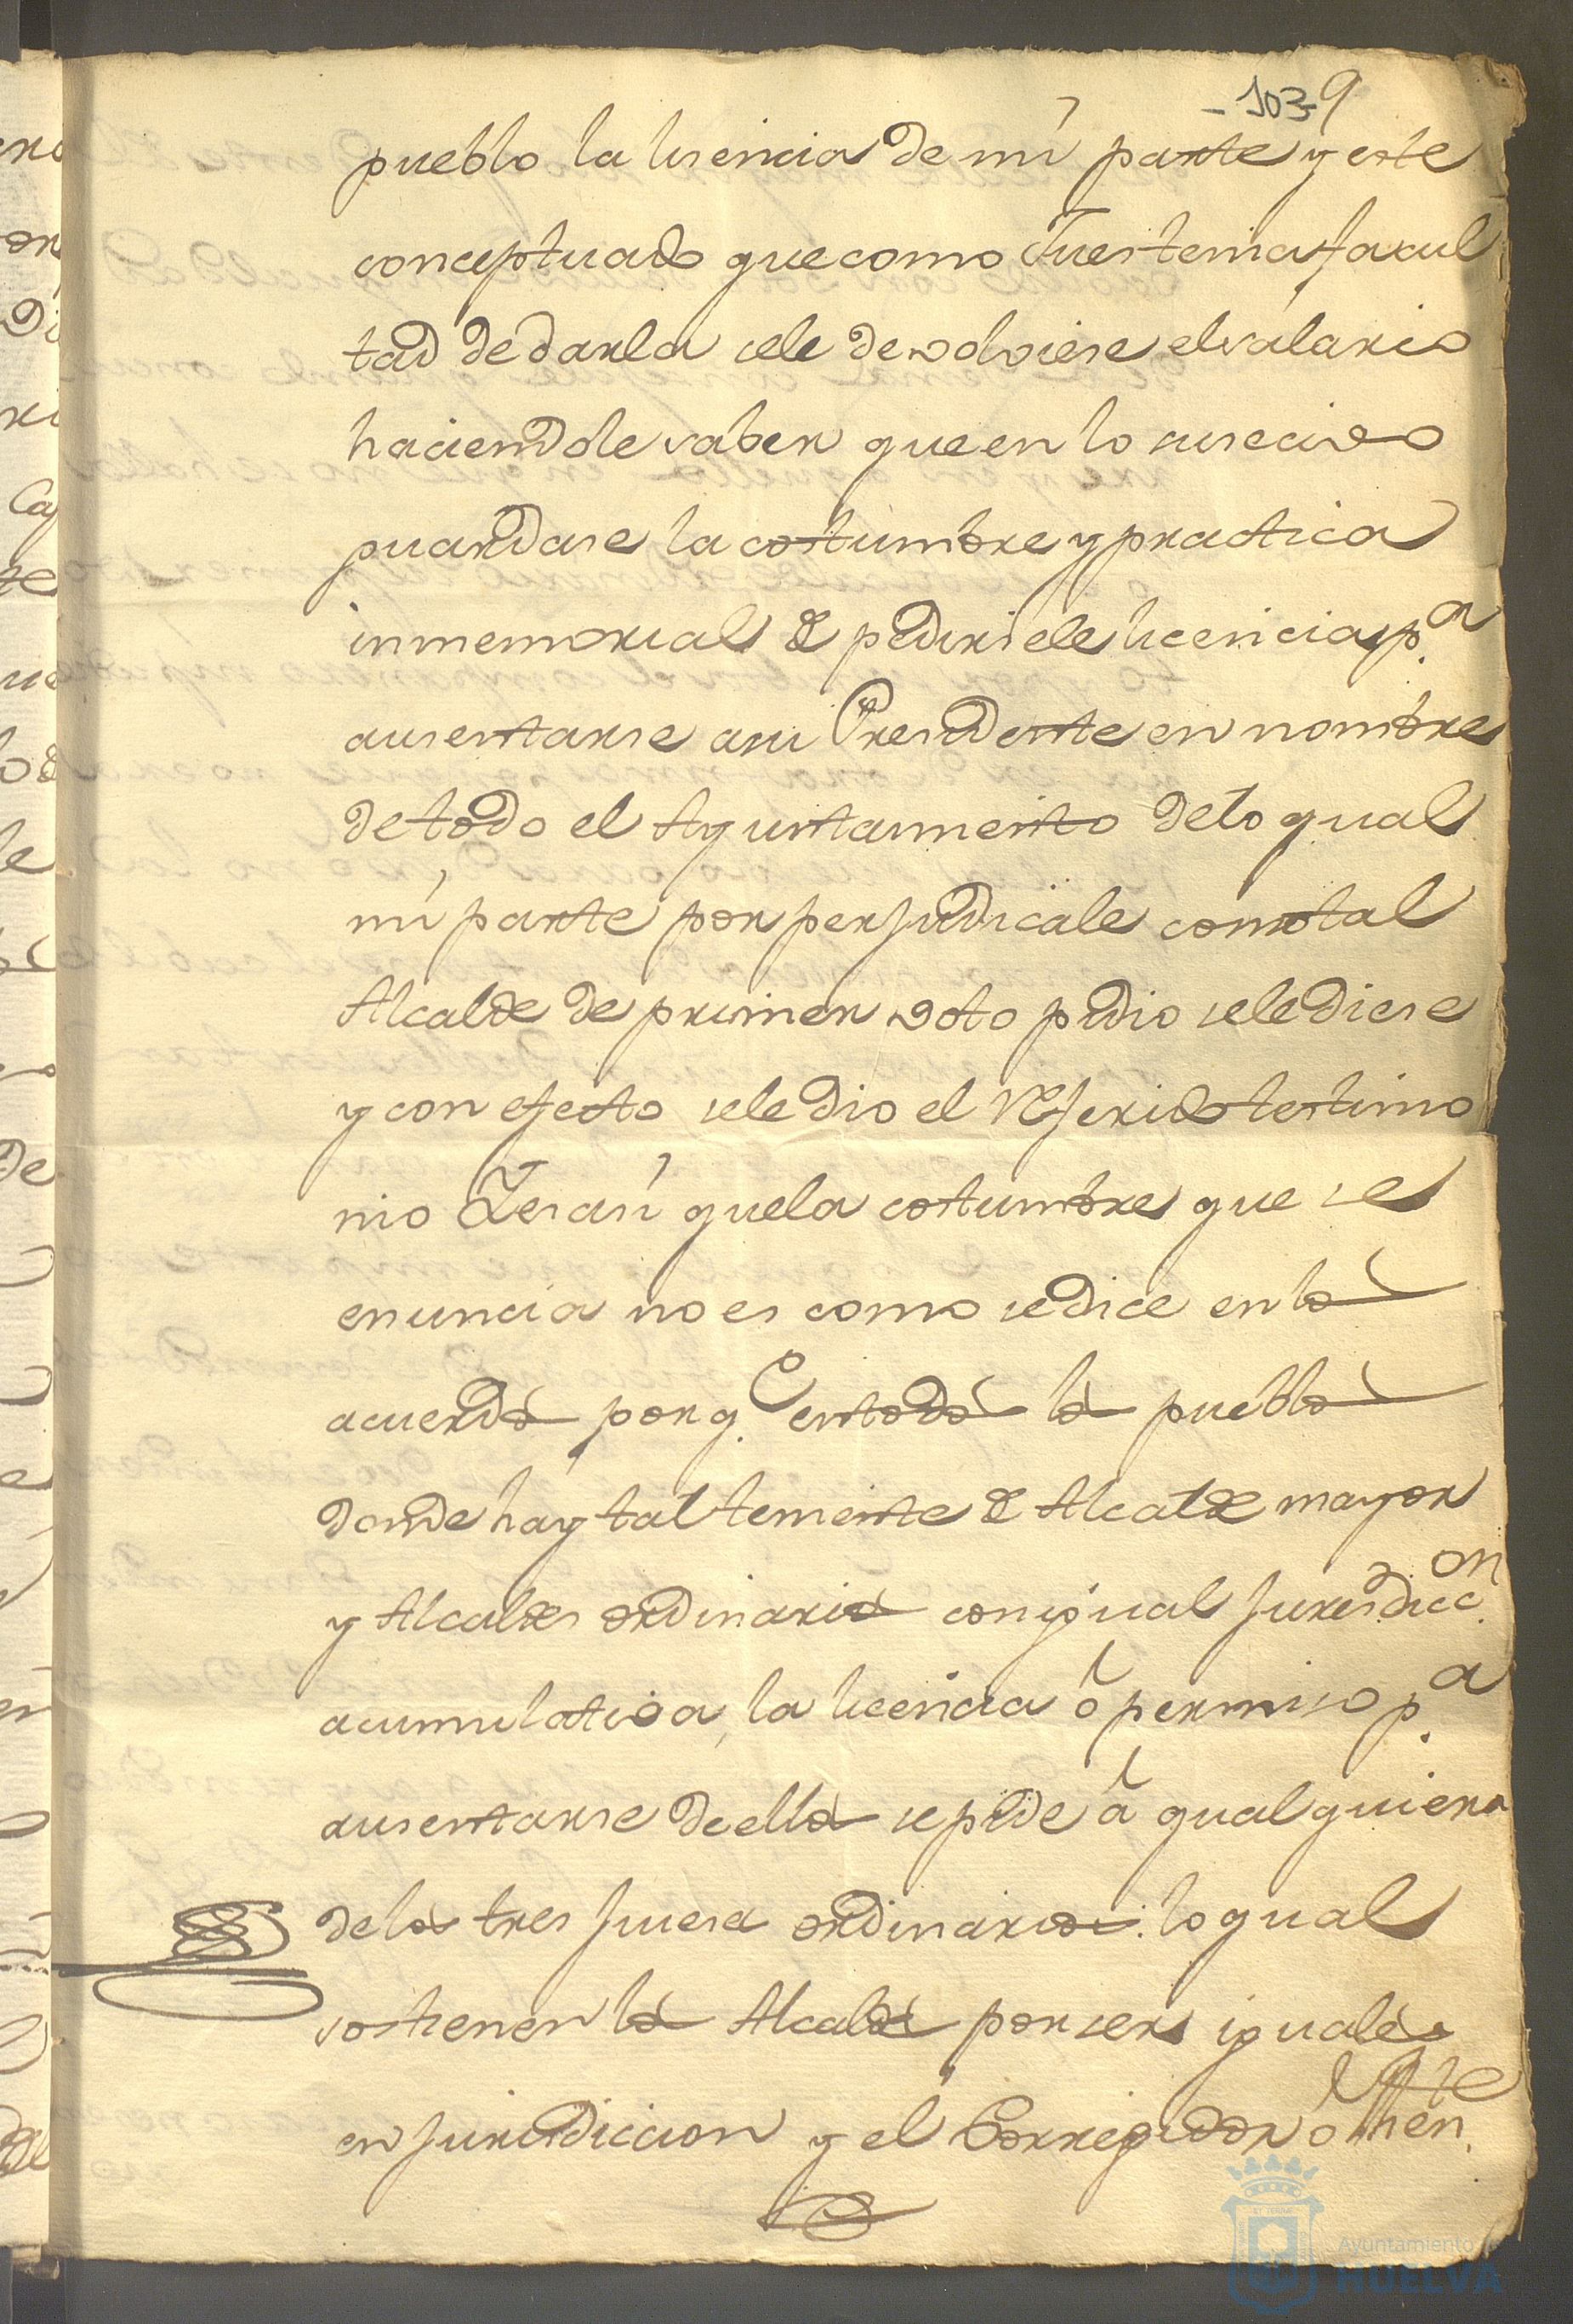 -103-9
pueblo la lisencia de mi parte y este
conceptuado que como Jues tenia facul
tad de darla se le devolviese el salario
haciendole saber que en lo susecivo
guardase la costumbre y practica
inmemorial de pedirsele licencia p.a
ausentarse a su Presidente en nombre
de todo el Ayuntamiento de lo qual
mi parte por perjudicale como tal
Alcalde de primer voto pidio se le diese
y con efecto se le dio el referido testimo
nio Y es asi que la costumbre que se
enuncia no es como se dice en los
acuerdos porq.e en todos los pueblos
donde hay tal teniente de Alcalde mayor
y Alcaldes ordinarios con igual Juresdicc.on
acumulativa, la licencia ó permiso p.a
ausentarse de ellos se pide á qualquiera
de los tres Jueses ordinarios: lo qual
sostienen los Alcaldes por ser iguales
en jurisdiccion y el Corregidor ó then.te
Ayuntamiento
HUELVA